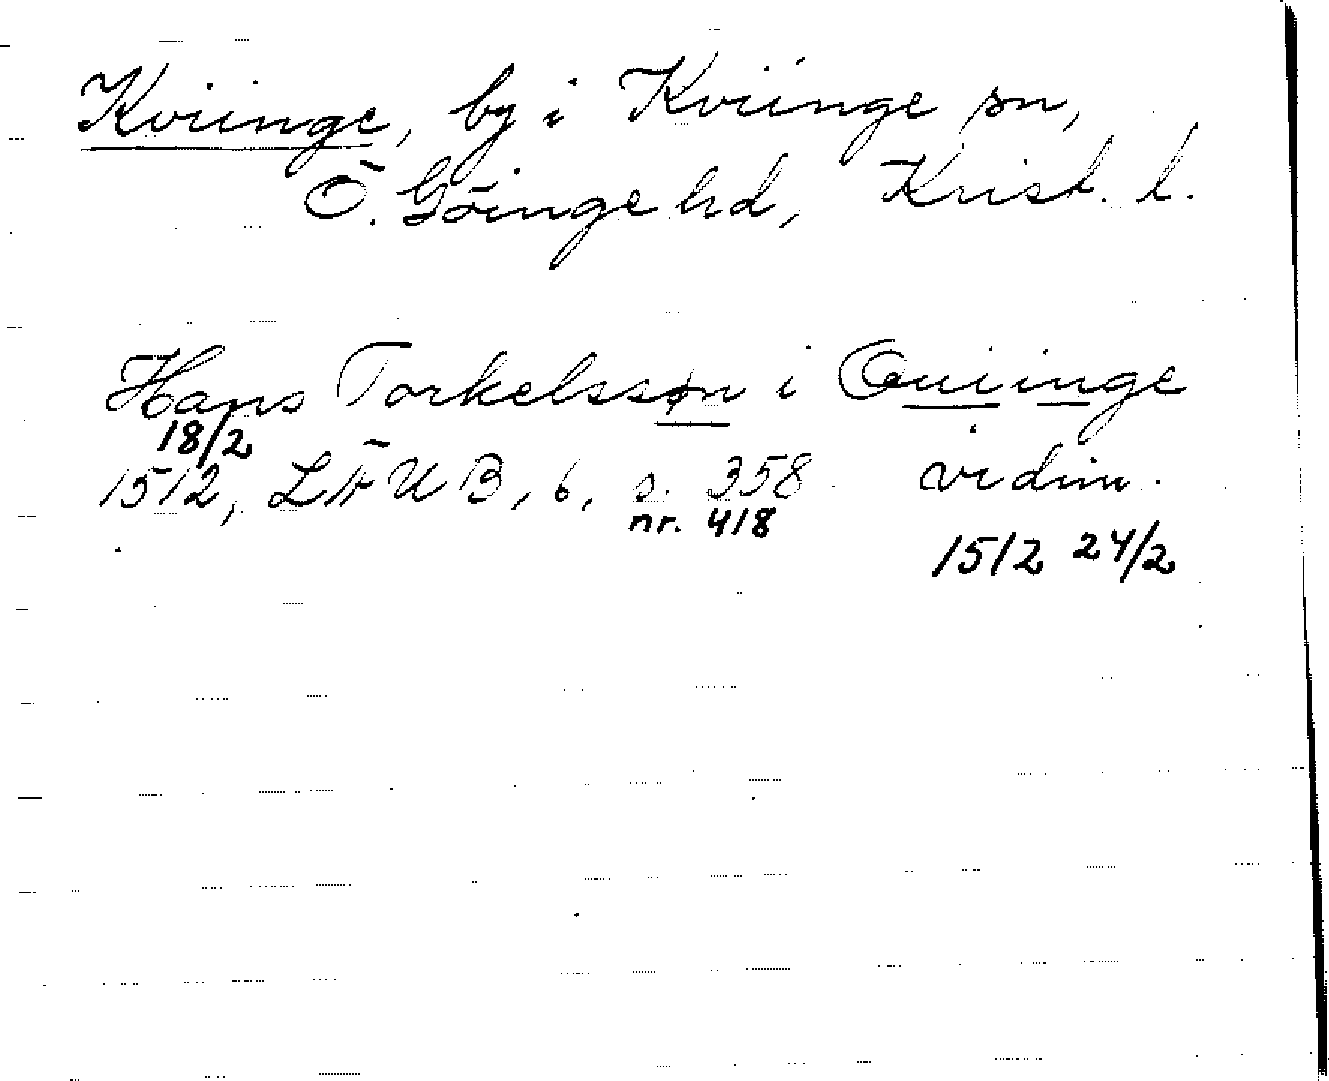 Kviinge, by i Kviinge sn,
Ö. Göinge hd, Krist. l.
Hans Torkelssøn i Quiinge
18/2
1512, LÄUB, 6, s. 358 vidim.
nr. 418
1512 24/2